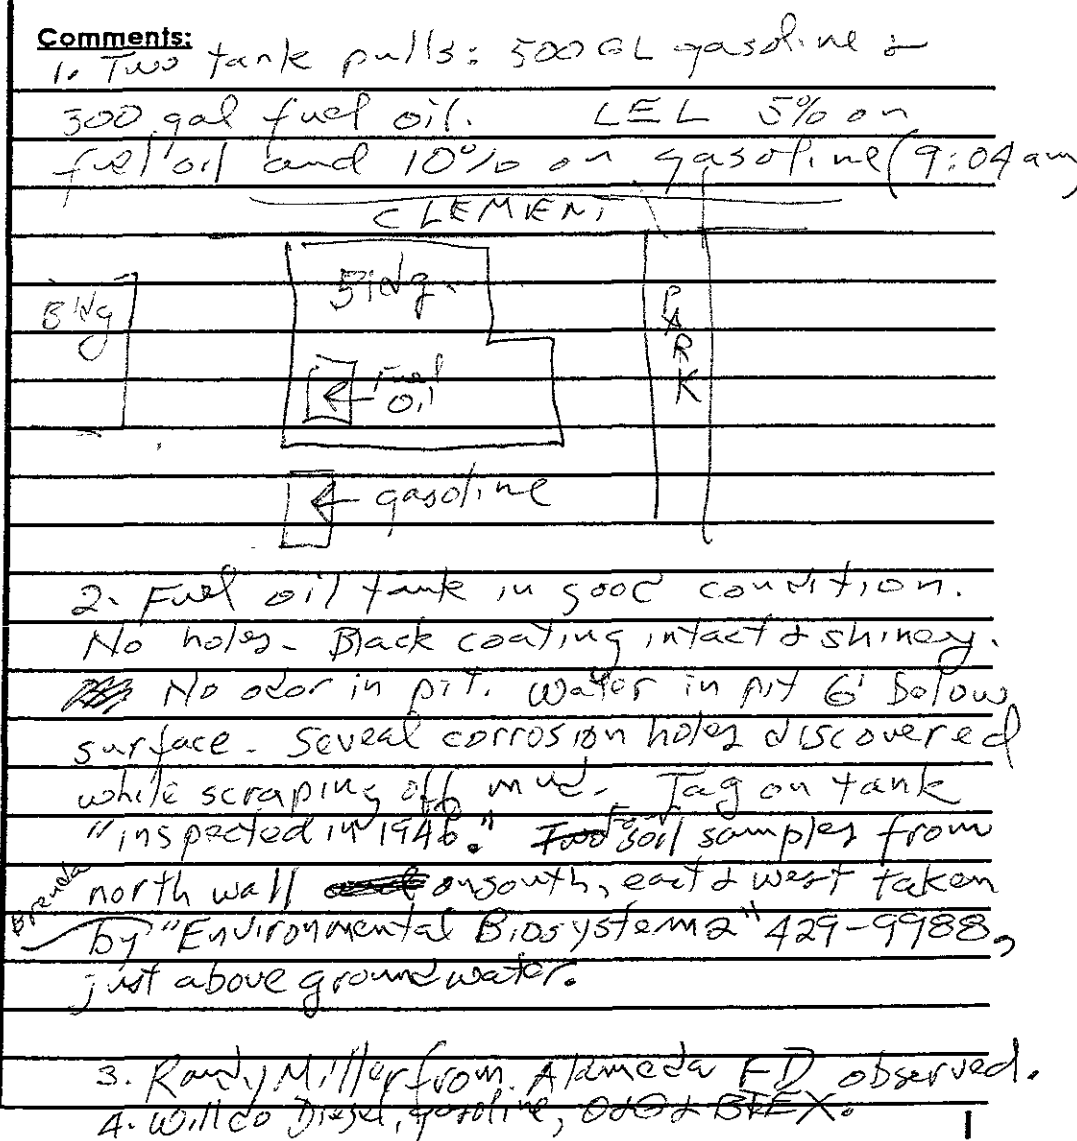 Comments:
1. Two tank pulls: 500 GL gasoline &
300 gal fuel oil. LEL 5% on
fuel oil and 10% on gasoline (9:04 am)
CLEMENT
Bldg.
Bldg
PARK
← Fuel
oil
← gasoline
2. Fuel oil tank in good condition.
No holes. Black coating intact & shiney.
No odor in pit. Water in pit 6' below
surface. Seveal corrosion holes discovered
while scraping off mud. Tag on tank
"inspected in 1946." Four soil samples from
north wall on south, east & west taken
Brenda
by "Environmental Biosystems" 429-9988,
just above groundwater.
3. Randy Miller from Alameda FD observed.
4. Will do Diesel, gasoline, O&G & BTEX.
1